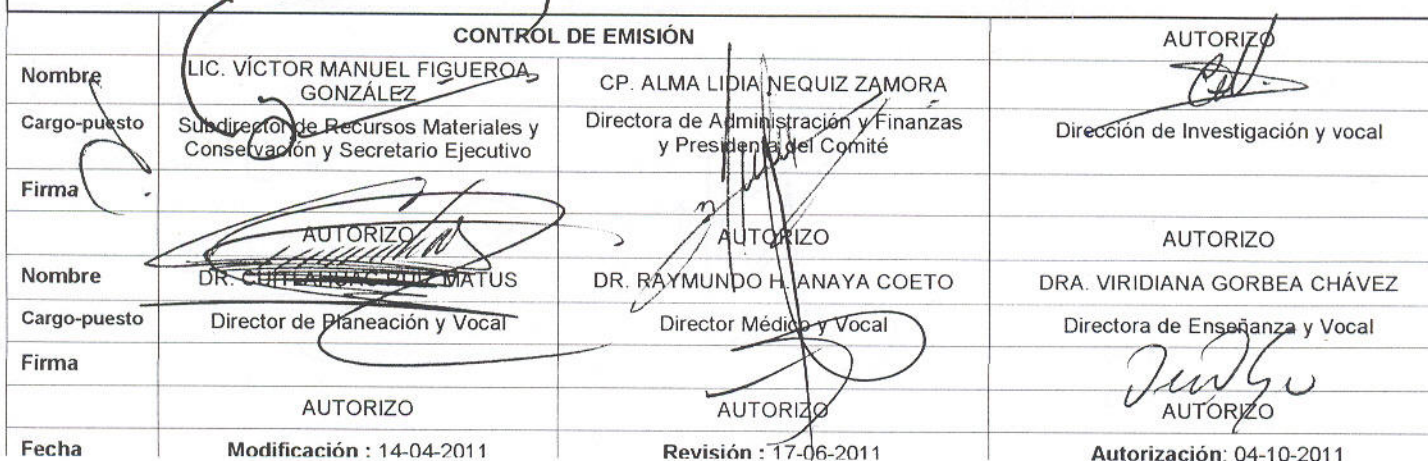 CONTROL DE EMISIÓN AUTORIZO
Nombre LIC. VÍCTOR MANUEL FIGUEROA GONZÁLEZ CP. ALMA LIDIA NEQUIZ ZAMORA
Cargo-puesto Subdirector de Recursos Materiales y Conservación y Secretario Ejecutivo Directora de Administración y Finanzas y Presidenta del Comité Dirección de Investigación y vocal
Firma
AUTORIZO AUTORIZO AUTORIZO
Nombre DR. CUITLAHUAC RUIZ MATUS DR. RAYMUNDO H. ANAYA COETO DRA. VIRIDIANA GORBEA CHÁVEZ
Cargo-puesto Director de Planeación y Vocal Director Médico y Vocal Directora de Enseñanza y Vocal
Firma
AUTORIZO AUTORIZO AUTORIZO
Fecha Modificación : 14-04-2011 Revisión : 17-06-2011 Autorización: 04-10-2011